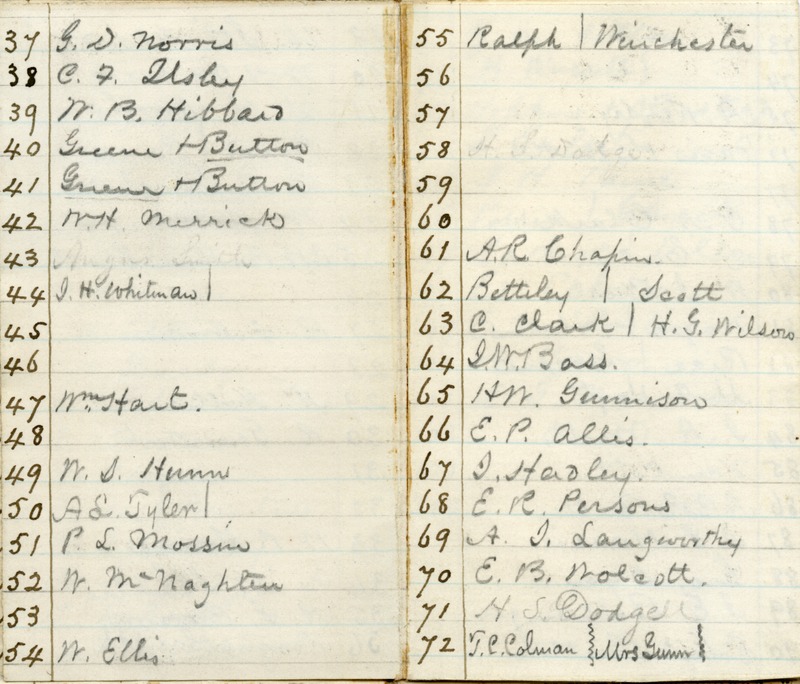 37 G. D. Norris
38 C. F. Ilsley
39 W. B. Hibbard
40 Greene + Button
41 Greene + Button
42 W.H. Merrick
43 Smith
44 I. H. Whitman |
45
46
47 Wm Hart.
48
49 W. S. Hunn
50 A.L. Tyler |
51 P. L. Mossin
52 W. McNaghten
53
54 W. Ellis
55 Ralph | Winchester
56
57
58 H. S. Dodge
59
60
61 A.R. Chapin.
62 Betteley | Scott
63 C. Clark | H.G. Wilson
64 I.W. Bass.
65 H.W. Gunnison
66 E. P. Allis.
67 J. Hadley.
68 E. R. Persons
69 A. J. Langworthy
70 E. B. Wolcott.
71 H. S. Dodge
72 T.C. Colman Mrs Gunn